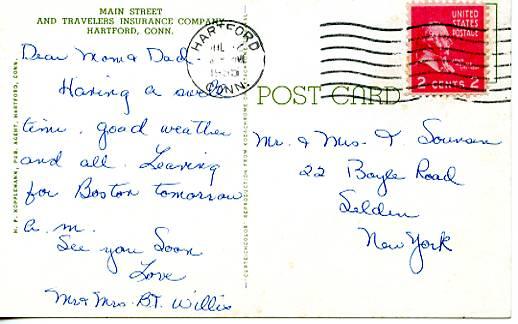 MAIN STREET
AND TRAVELERS INSURANCE COMPANY
HARTFORD, CONN.
Dear Mom & Dad -
Having a swell
time. Good weather
and all. Leaving
for Boston tomorrow
a.m.
See you Soon
Love
Mr & Mrs. B.T. Willis
HARTFORD
CONN.
UNITED
STATES
POSTAGE
2 CENTS 2
POST CARD
Mr. & Mrs. T.
22 Boyle Road
Selden
New York
H. P. KOPPLEMANN, PUB. AGENT, HARTFORD, CONN.